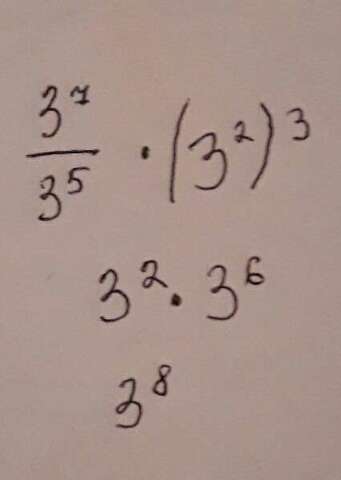 3⁷/3⁵ · (3²)³
3² · 3⁶
3⁸